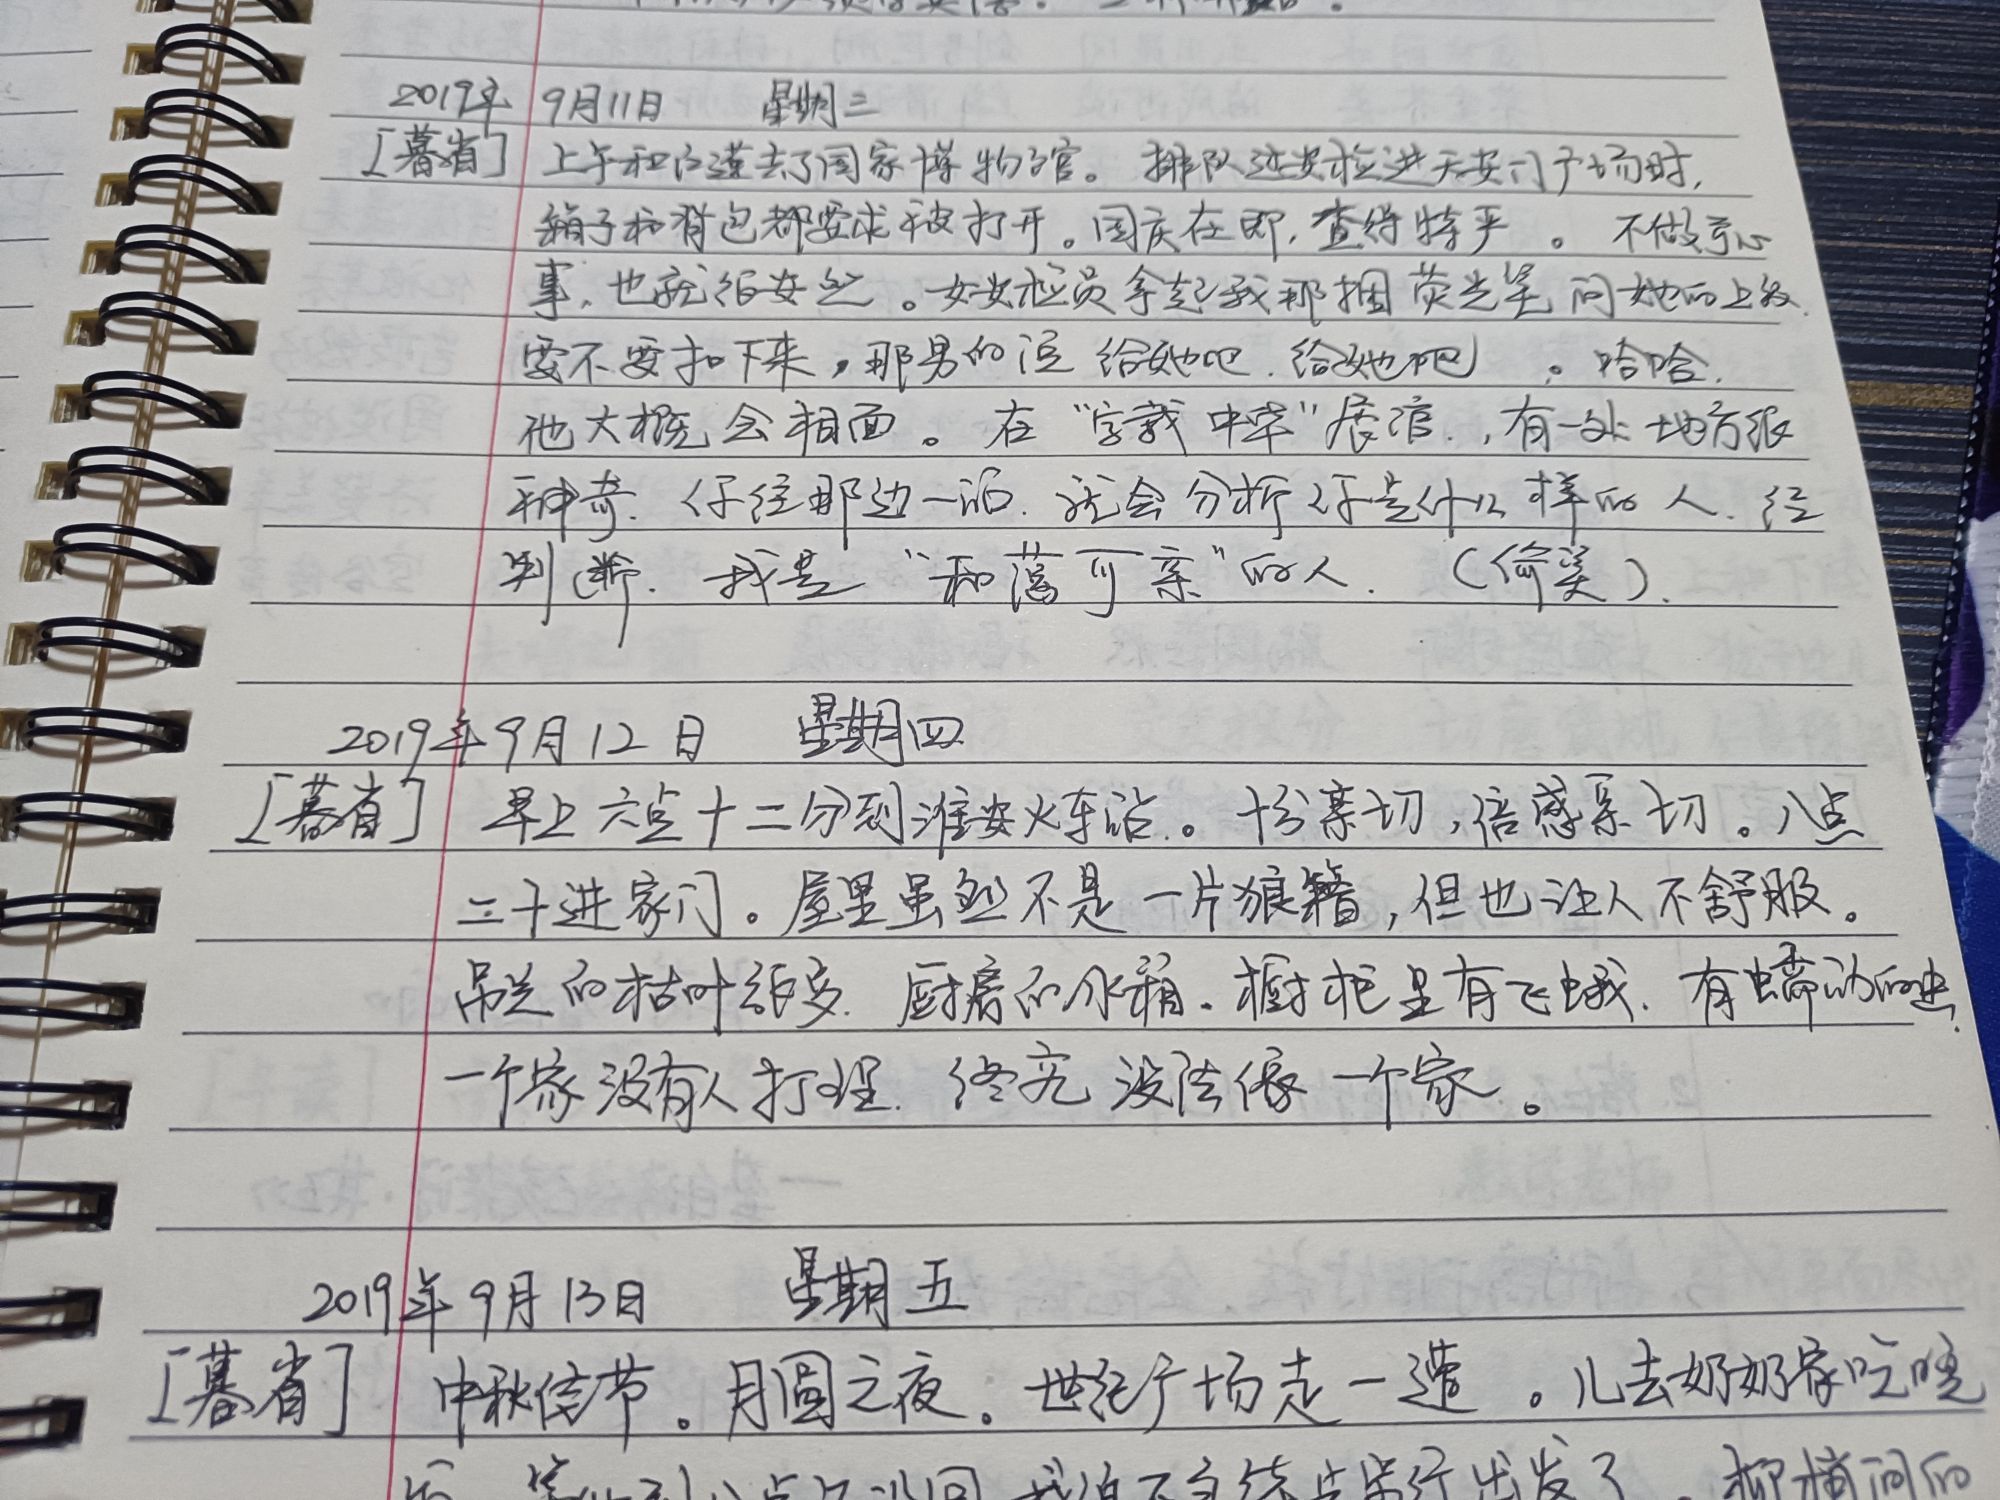 2019年 9月11日 星期三
[暮省] 上午和白莲去了国家博物馆。排队过安检进天安门广场时,
箱子和背包都要求被打开。国庆在即,查得特严。不做亏心
事,也就很安然。女安检员拿起我那捆荧光笔问她的上级,
要不要扣下来,那男的说给她吧,给她吧。哈哈,
他大概会相面。在“字载中华”展馆,有一处地方很
神奇,你往那边一站,就会分析你是什么样的人,经
判断,我是“和蔼可亲”的人,(偷笑)。
2019年9月12日 星期四
[暮省] 早上六点十二分到淮安火车站。十分亲切,倍感亲切。八点
二十进家门。屋里虽然不是一片狼籍,但也让人不舒服。
吊兰的枯叶很多,厨房的水箱,橱柜里有飞蛾,有蠕动的虫,
一个家没有人打理,终究没法像一个家。
2019年9月13日 星期五
[暮省] 中秋佳节。月圆之夜。世纪广场走一遭。儿去奶奶家吃晚